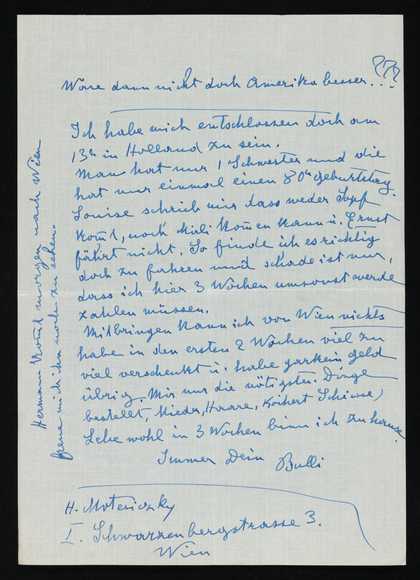 Wäre dann nicht doch Amerika besser..???
Ich habe mich entschlossen doch am
13ten in Holland zu sein.
Man hat nur 1 Schwester und die
hat nur einmal einen 80th Geburtstag.
Louise schrieb mir dass weder
kom̄t, noch kom̄en kann u. Ernst
fährt nicht. So finde ich es richtig
doch zu fahren und schade ist nur,
dass ich hier 3 Wochen umsonst werde
zahlen müssen.
Mitbringen kann ich von Wien nichts
habe in den ersten 2 Wochen viel zu
viel verschenkt u. habe garkein Geld
übrig. Mir nur die nötigsten Dinge
bestellt, Mieder, Haare,
Lebe wohl in 3 Wochen binn ich zuhause.
Immer Dein Bulli
H. Motesiczky
I. Schwarzenbergstrasse 3.
Wien
Hermann kom̄t morgen nach Wien
freue mich ihn noch zu sehen.